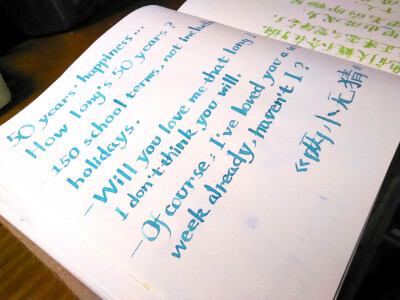 50 years' happiness...
How long's 50 years?
—150 school terms, not including
holidays.
—Will you love me that long?
I don't think you will.
—Of course, I've loved you a
week already, haven't I?
《两小无猜》